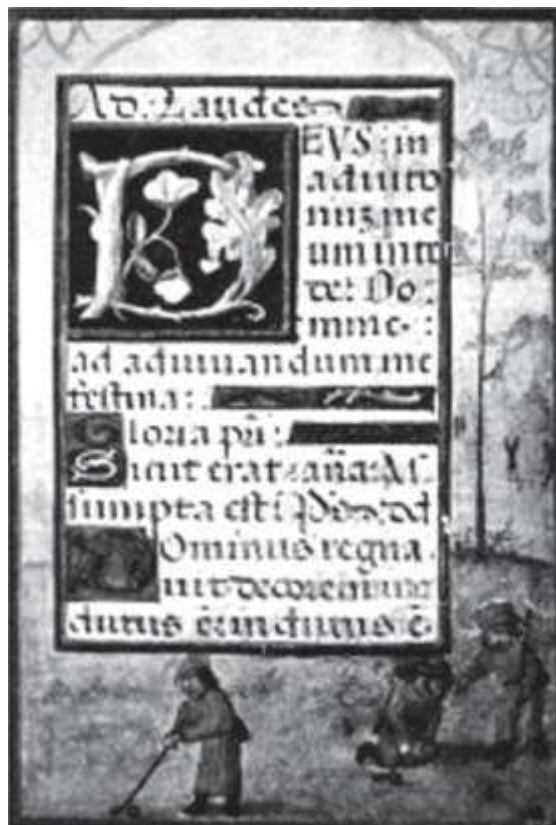 Ad. Laudes
DEVS: in
adiuto
riuʒ me
um inte
de: Do:
mine. :
ad adiuuandum me
festina:
Gloria pri:
Sicut erat: aña: As
sumpta est i
Dominus regna
uit decorem in
dutus ē: indutus ē.